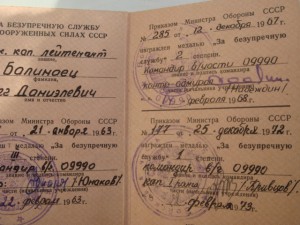 ЗА БЕЗУПРЕЧНУЮ СЛУЖБУ
ВООРУЖЕННЫХ СИЛАХ СССР
кап. лейтенант
Балинаец
фамилия
Данилевич
имя и отчество
Приказом Министра Обороны СССР
21. января 1963г.
награжден медалью „За безупречную
службу" III степени
командир в/ч 09990
/Юнаков/
22 февраля 63г.
Приказом Министра Обороны СССР
№ 285 от 12. декабря 1967г.
награжден медалью „За безупречную
службу" 2 степени
Командир в/части 09990
контр-адмирал
февраля 1968г.
Приказом Министра Обороны СССР
№ 177 от 25. декабря 1972г.
награжден медалью „За безупречную
службу" 1 степени
командир в/ч 09990
кап. 1 ранга /Кравцов/
февраля 1973г.